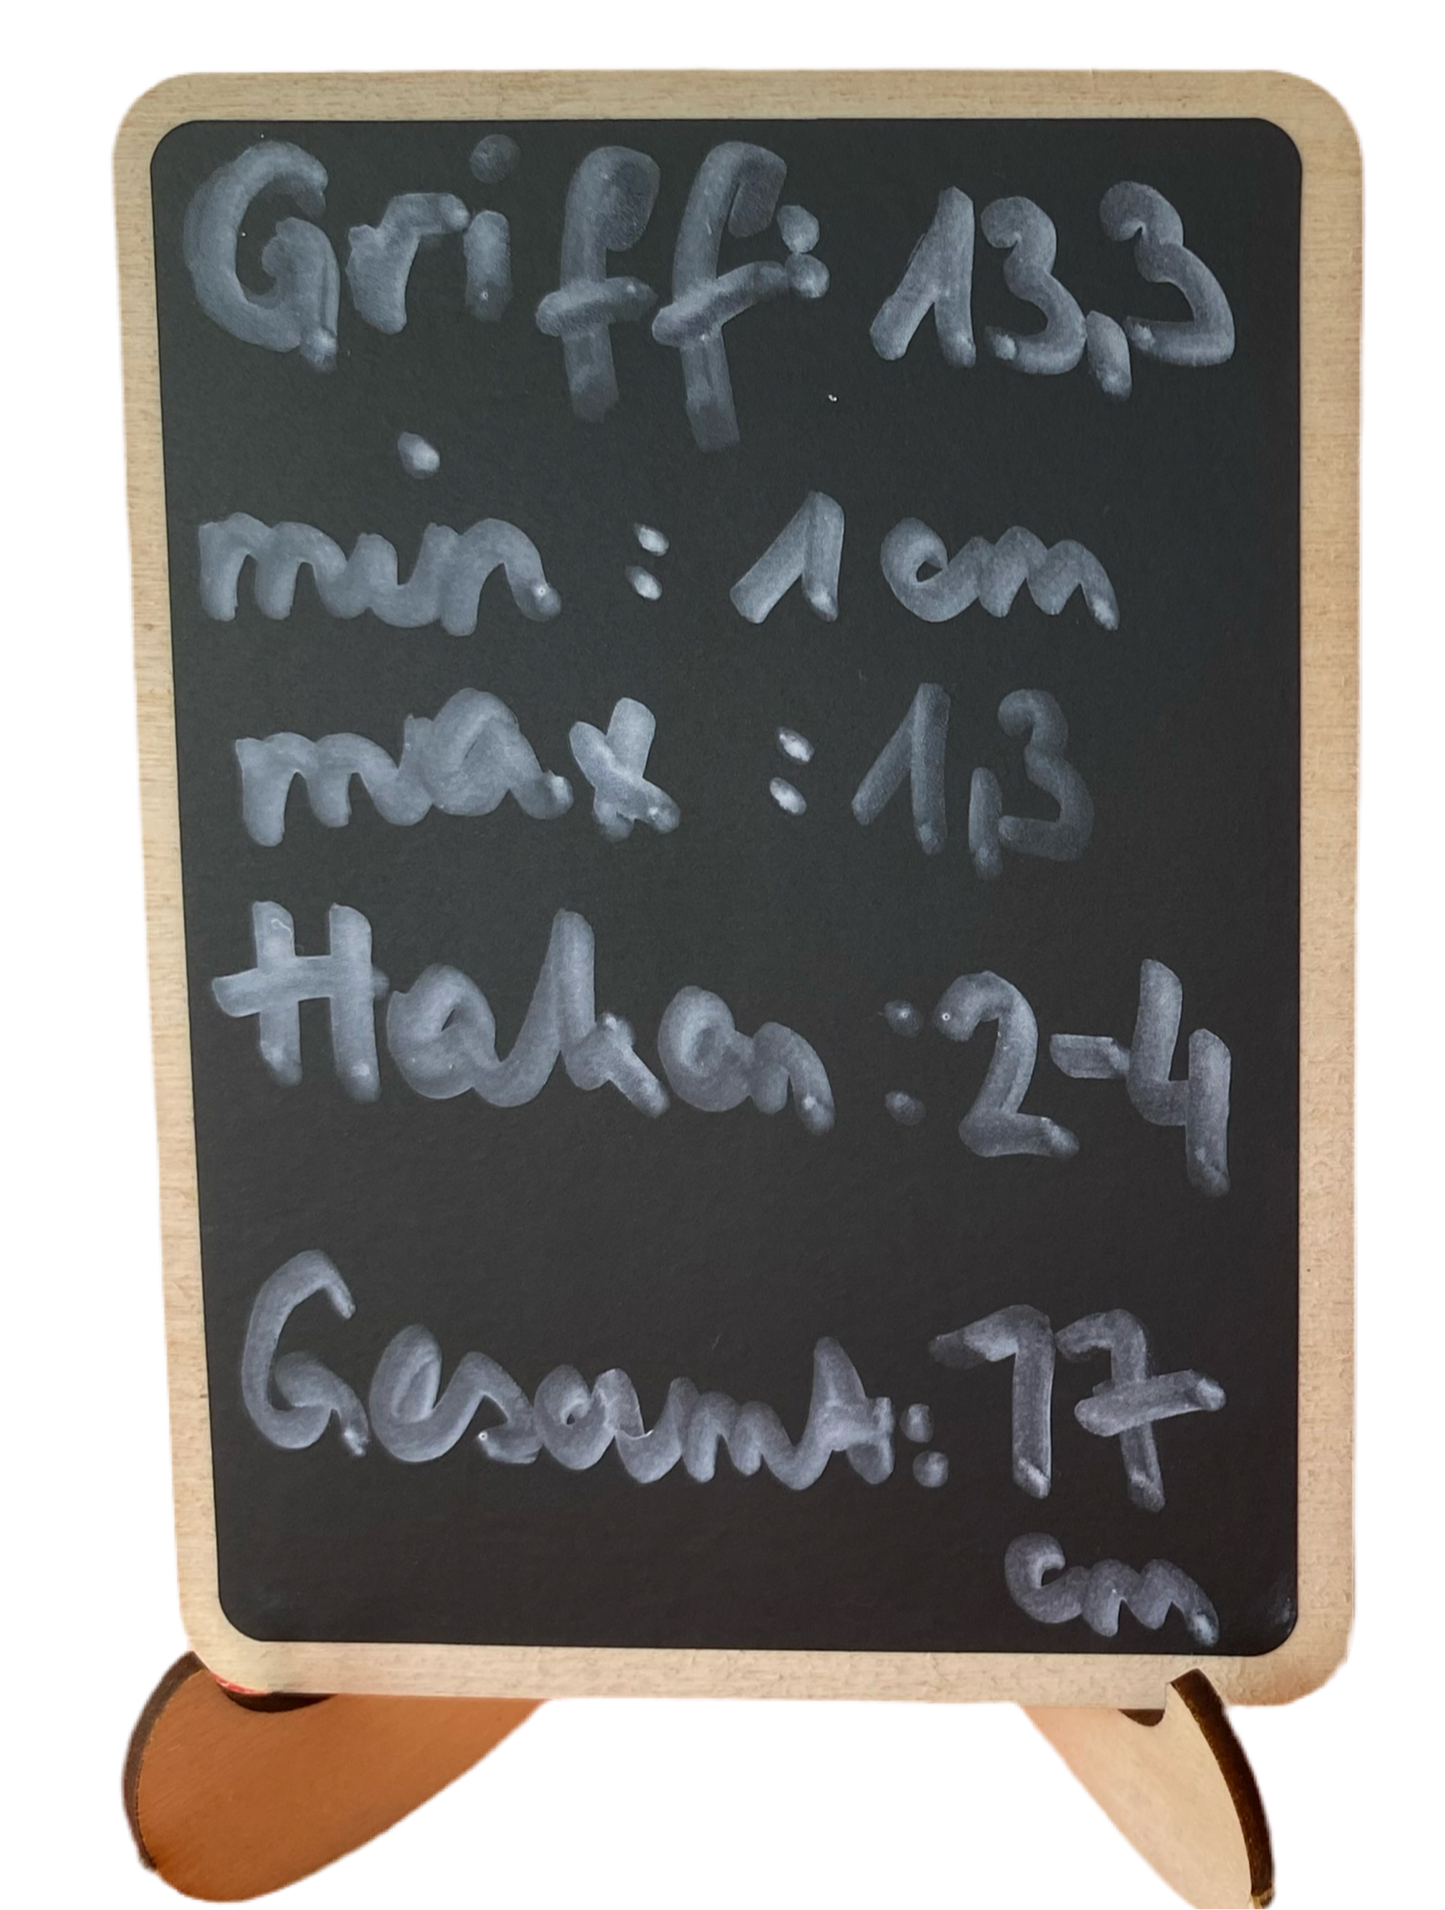 Griff: 13,3
min : 1 cm
max : 1,3
Haken : 2-4
Gesamt: 17
cm